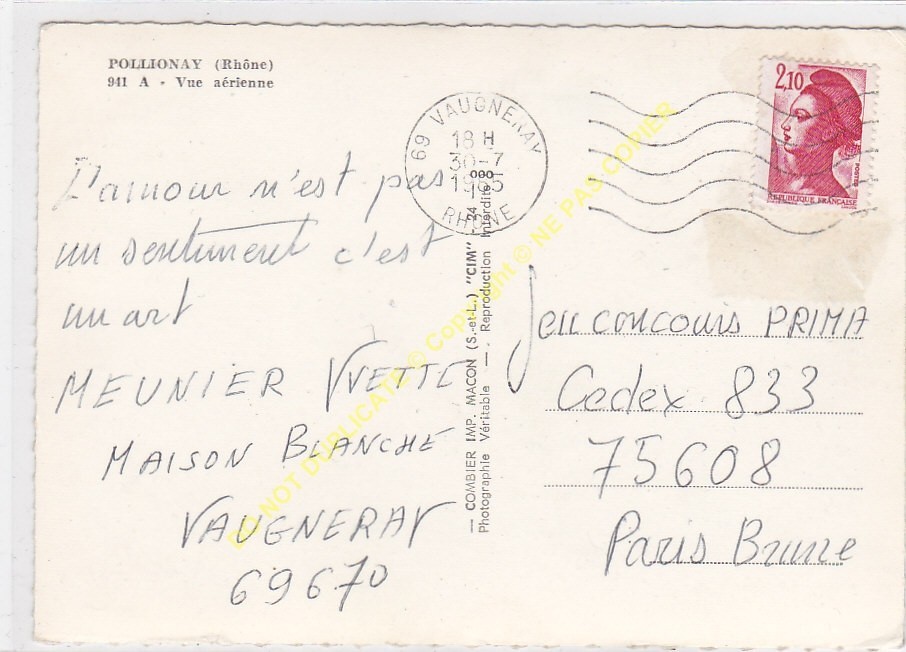 POLLIONAY (Rhône)
941 A - Vue aérienne
L'amour n'est pas
un sentiment c'est
un art
MEUNIER YVETTE
MAISON BLANCHE
VAUGNERAY
69670
69 VAUGNERAY
18 H
30-7
1985
RHONE
2,10
POSTES
REPUBLIQUE FRANÇAISE
— COMBIER IMP. MACON (S.-et-L.) "CIM"
Photographie Véritable — Reproduction Interdite
24 000
Jeu concours PRIMA
Cedex 833
75608
Paris Brune
DO NOT DUPLICATE © Copyright © NE PAS COPIER